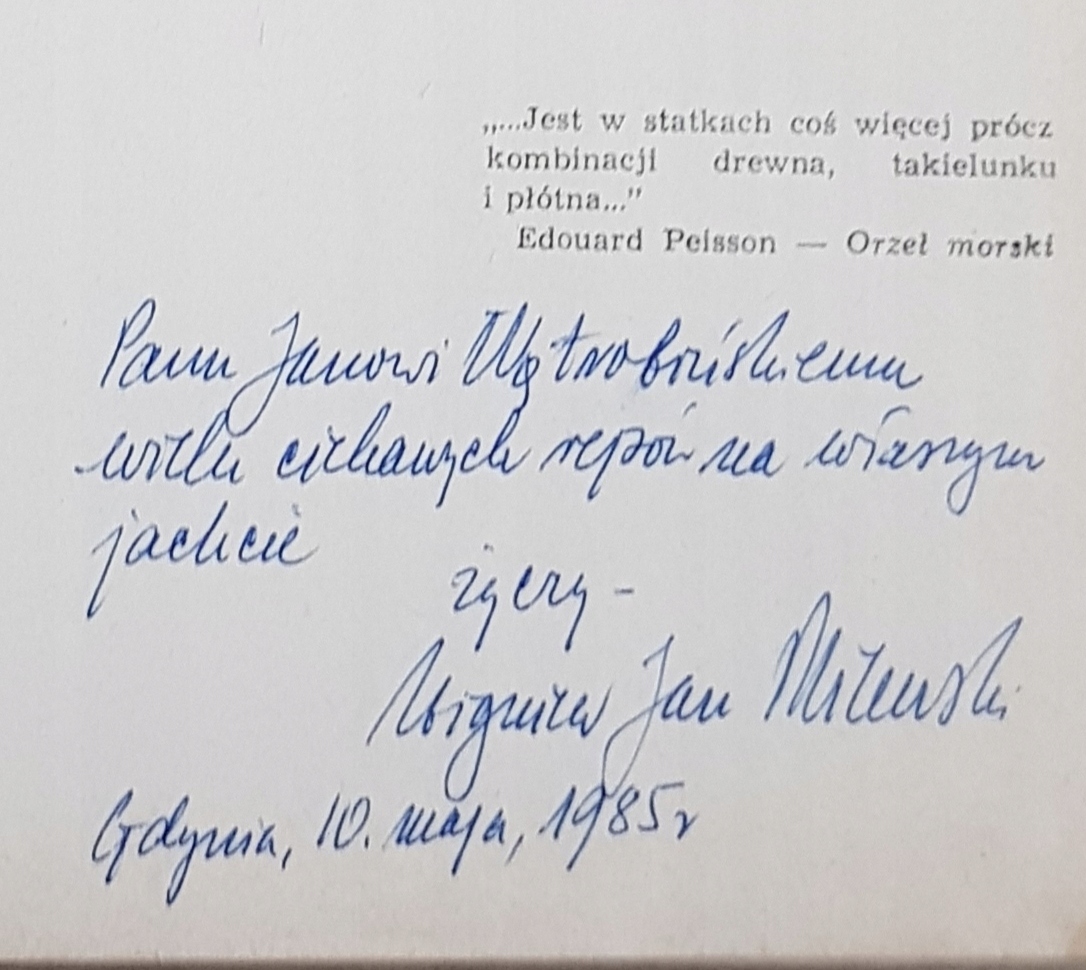 „...Jest w statkach coś więcej prócz
kombinacji drewna, takielunku
i płótna...”
Edouard Peisson — Orzeł morski
Panu Janowi Wątrobińskiemu
wielu ciekawych rejsów na własnym
jachcie
życzy -
Zbigniew Jan Milewski
Gdynia, 10. maja, 1985r